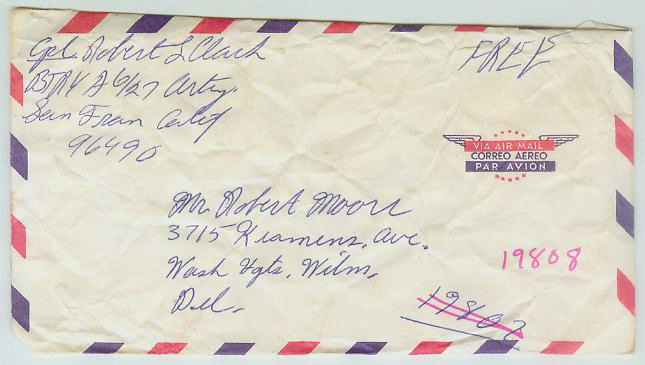 Cpl. Robert L Clark
BTRY A 6/27 Arty.
San Fran Calif
96490
FREE
VIA AIR MAIL
CORREO AEREO
PAR AVION
Mr. Robert Moore
3715 Kiamensi, Ave.
Wash Hgts, Wilm,
Del.
19808